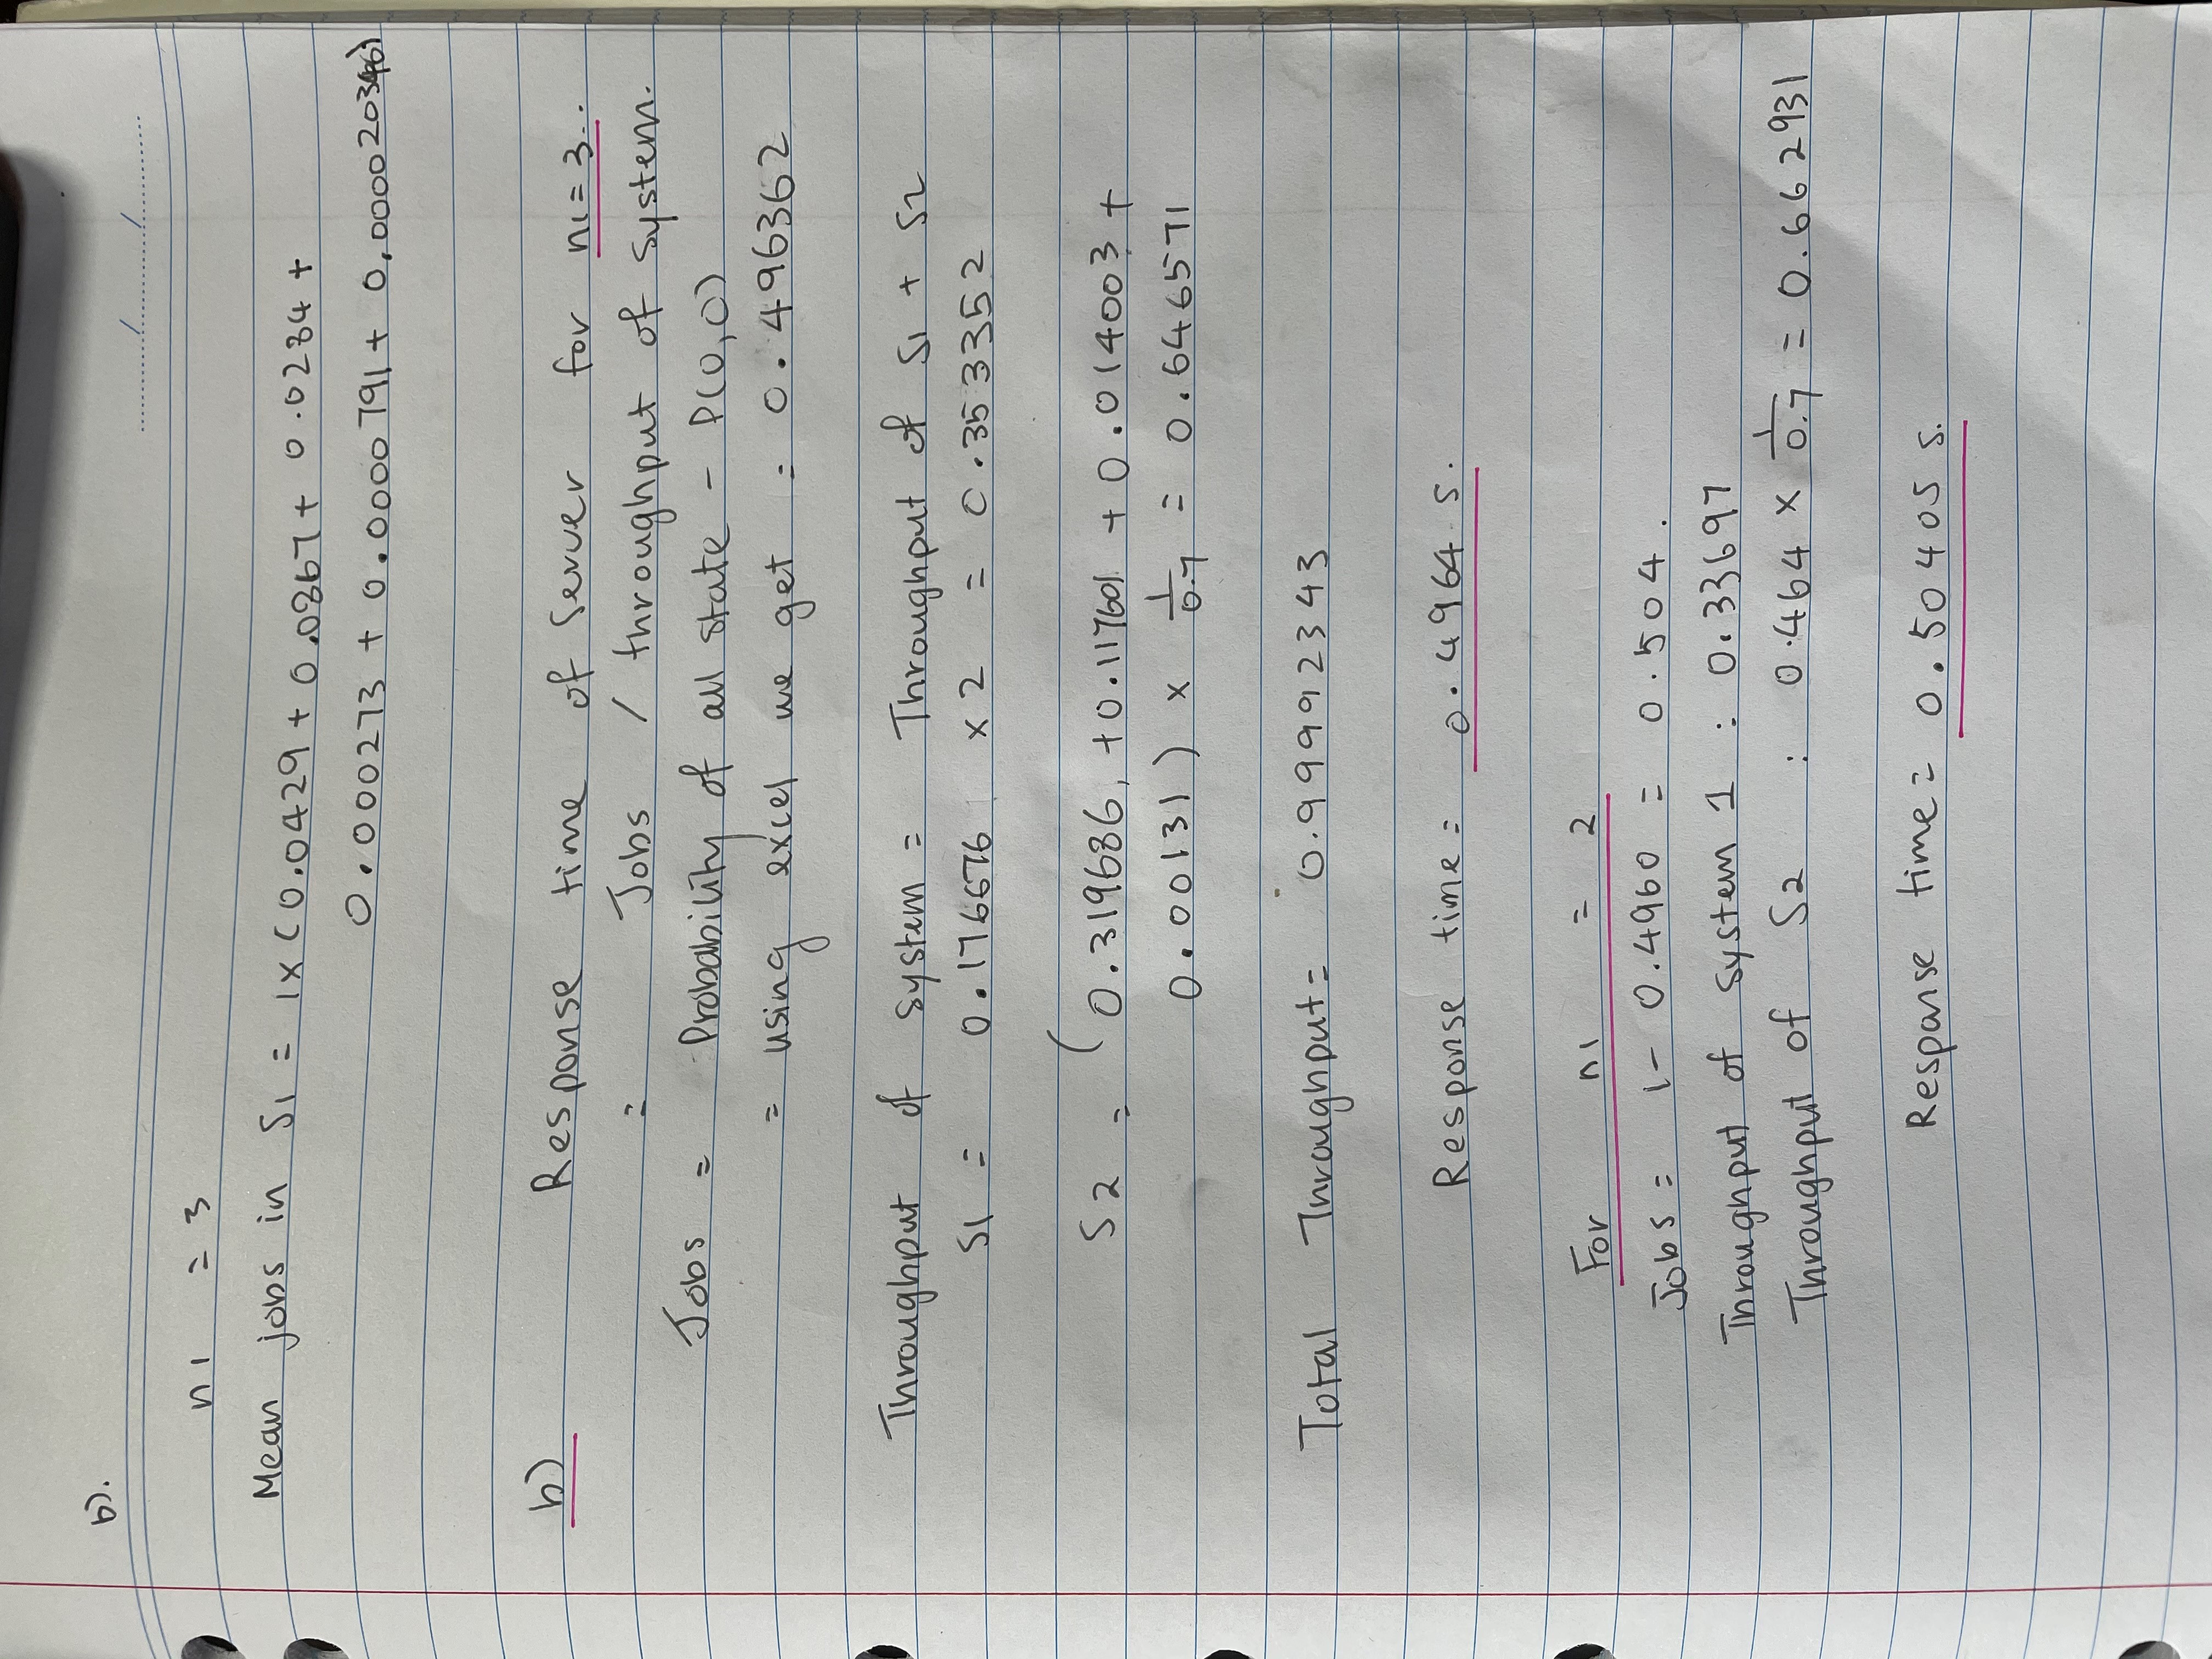 b).
n1 = 3
Mean jobs in S1 = 1 x (0.0429 + 0.0867 + 0.0284 +
0.000273 + 0.0000791 + 0.000020346)
b) Response time of Server for n1 = 3..
= Jobs / throughput of system.
Jobs = Probability of all state - P(0,0)
= using excel we get = 0.496362
Throughput of system = Throughput of S1 + S2
S1 = 0.1766776 x 2 = 0.3533352
S2 = (0.319686, + 0.117601 + 0.014003 +
0.00131) x 1/0.7 = 0.646571
Total Throughput = 0.99992343
Response time = 0.4964 s.
For n1 = 2
Jobs = 1 - 0.4960 = 0.504.
Throughput of system 1 : 0.33697
Throughput of S2 : 0.464 x 1/0.7 = 0.6662931
Response time = 0.50405 s.